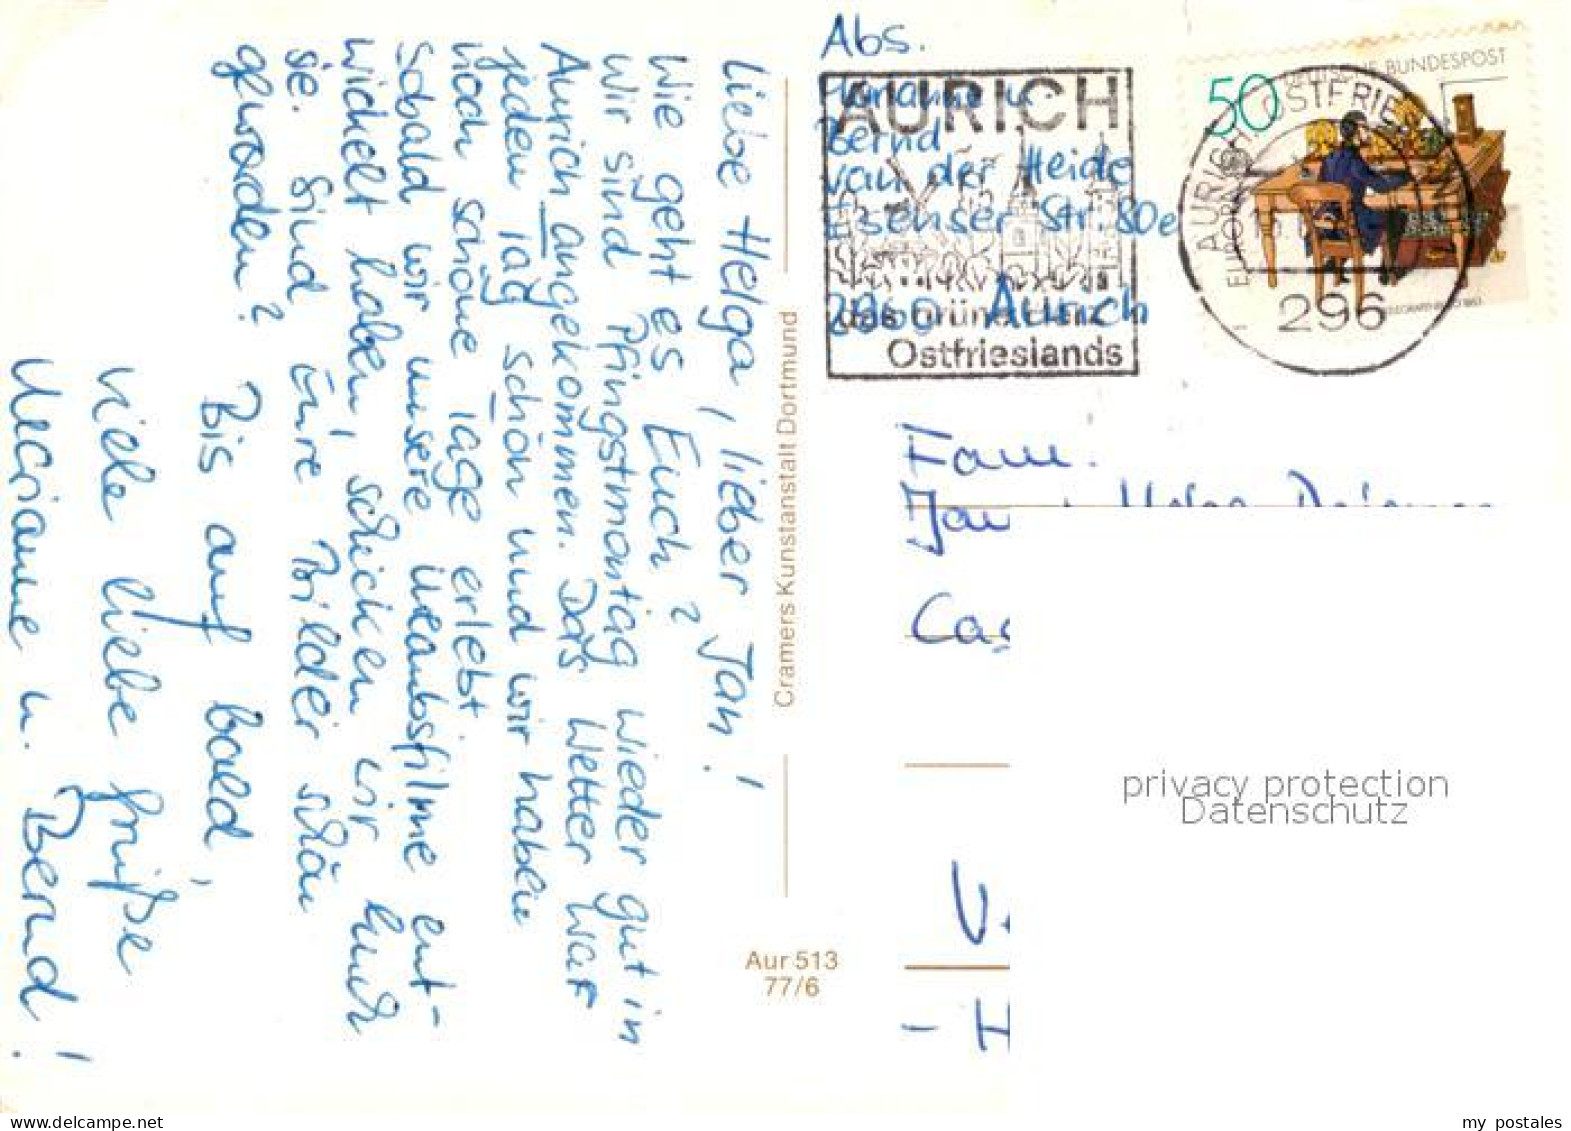 Liebe Helga, lieber Jan!
Wie geht es Euch?
Wir sind Pfingstmontag wieder gut in
Aurich angekommen. Das Wetter war
jeden Tag schön und wir haben
noch schöne Tage erlebt.
Sobald wir unsere Uraubsfilme ent-
wickelt haben, schicken wir Euch
sie. Sind Eure Bilder schön
geworden?
Bis auf bald,
viele liebe Grüße
Marianne u. Bernd!
Cramers Kunstanstalt Dortmund
Aur 513
77/6
Abs.
Marianne u.
Bernd
van der Heide
Esenser Str. 80e
2960 Aurich
AURICH
das grüne Herz
Ostfrieslands
50
DEUTSCHE BUNDESPOST
AURICH, OSTFRIESL
296
Fam.
Jan
privacy protection
Datenschutz
ak-ansichtskarten.de
my postales